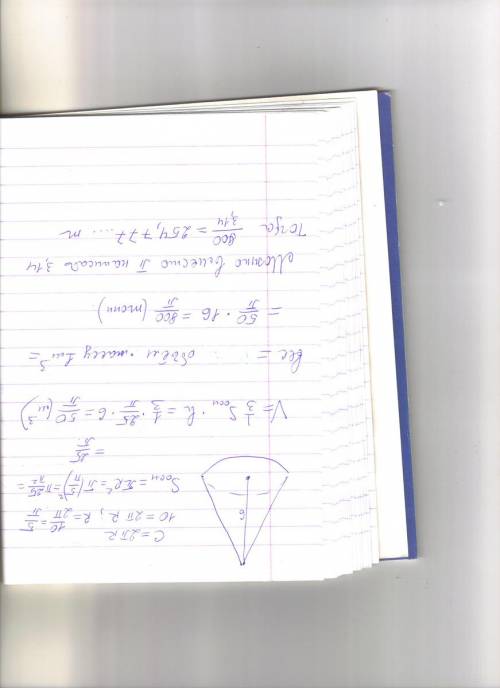 C = 2πR
10 = 2πR ; R = 10/2π = 5/π
Sосн = πR² = π(5/π)² = π 25/π² =
= 25/π
6
V = 1/3 Sосн · h = 1/3 · 25/π · 6 = 50/π (м³)
Вес = объём · массу 1 м³ =
= 50/π · 16 = 800/π (тонн)
Можно вместо π написать 3,14
Тогда 800/3,14 = 254,777.... т